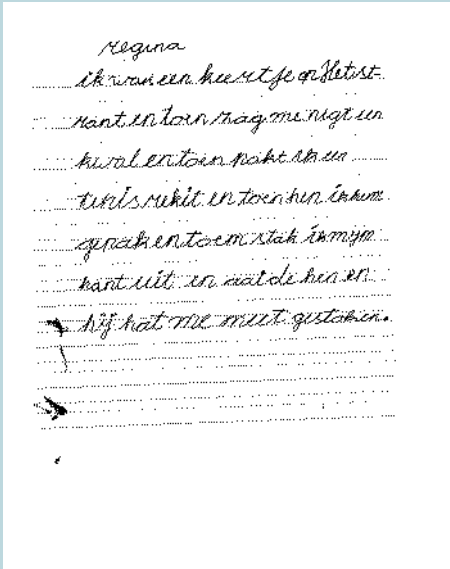 regina
ik was een keertje op Het st-
rant en toen zag me nigt een
kwal en toen pakt ik een
tenis rekit en toen hen ik hem
gepak en toem stak ik mijn
hant uit en aaide hem en
hij hat me niet gestoken.